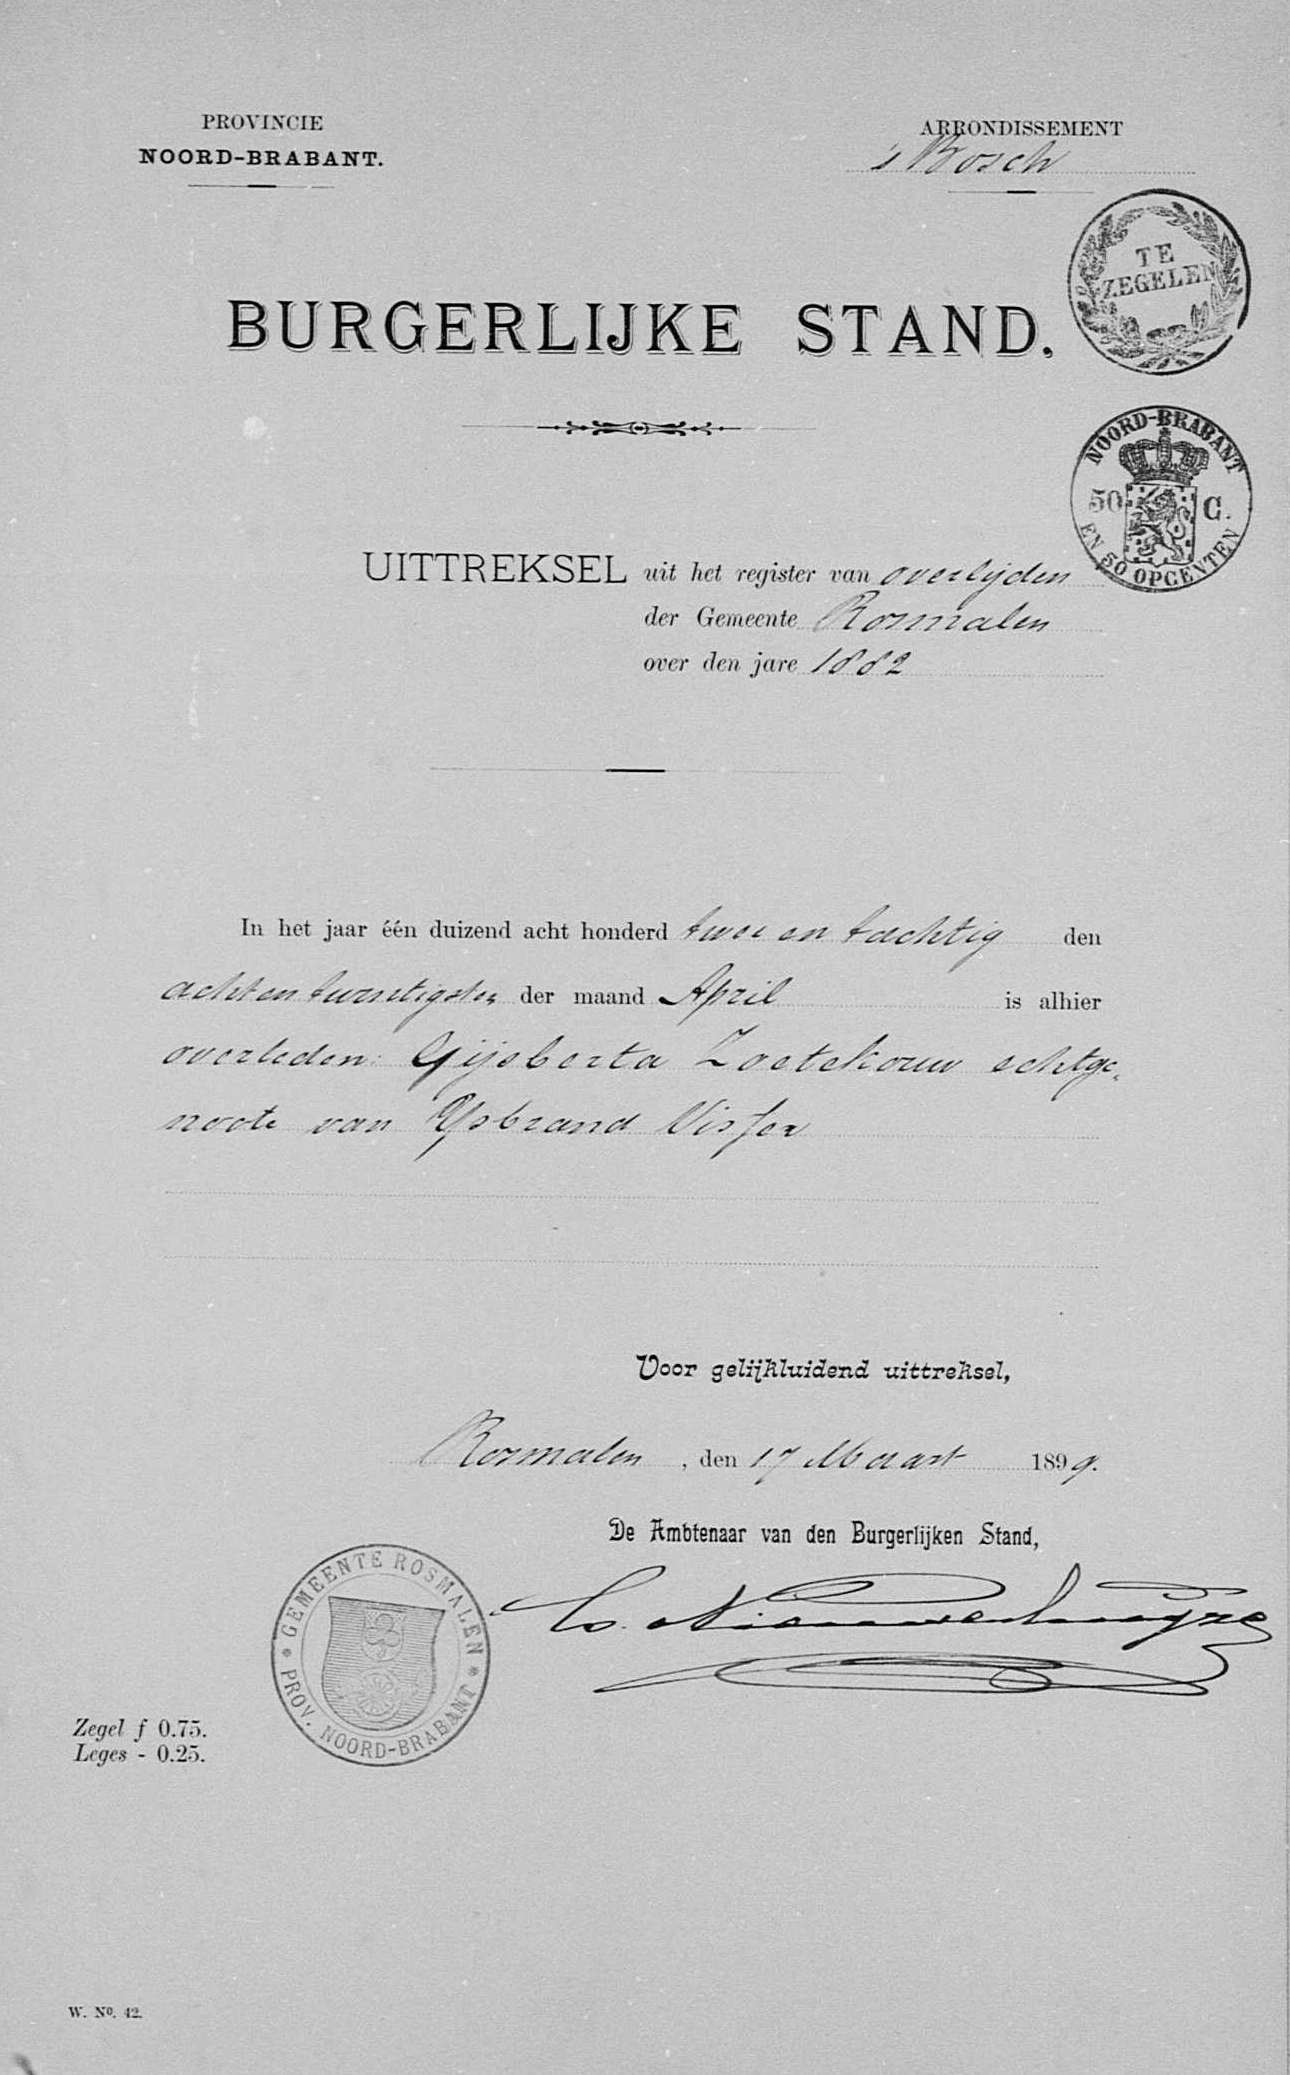 PROVINCIE
NOORD-BRABANT.
ARRONDISSEMENT
's Bosch
TE
ZEGELEN
BURGERLIJKE STAND.
NOORD-BRABANT
50 C.
EN 50 OPCENTEN
UITTREKSEL uit het register van overlijden
der Gemeente Rosmalen
over den jare 1882
In het jaar één duizend acht honderd twee en tachtig den
acht en twintigsten der maand April is alhier
overleden: Gijsberta Zoetekouw echtge-
noote van Ysbrand Visser
Voor gelijkluidend uittreksel,
Rosmalen, den 17 Maart 1899.
De Ambtenaar van den Burgerlijken Stand,
GEMEENTE ROSMALEN
PROV. NOORD-BRABANT
Zegel f 0.75.
Leges - 0.25.
W. No. 42.